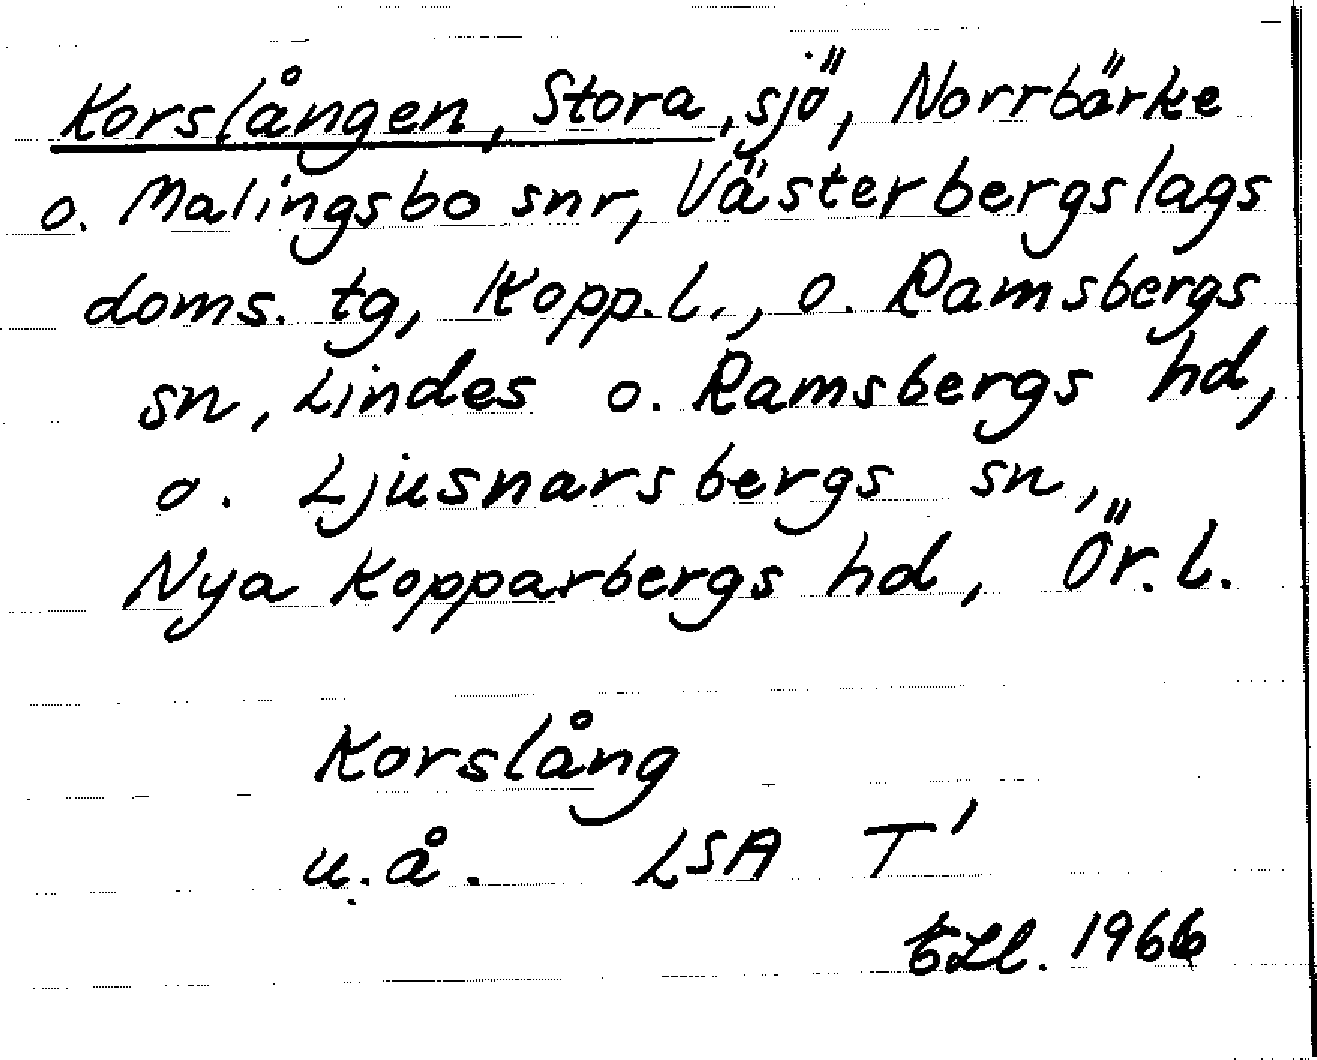 Korslången, Stora, sjö, Norrbärke
o. Malingsbo snr, Västerbergslags
doms. tg, Kopp.l., o. Ramsbergs
sn, Lindes o. Ramsbergs hd,
o. Ljusnarsbergs sn,
Nya Kopparbergs hd, Ör.l.
Korslång
u.å. LSA T'
1966